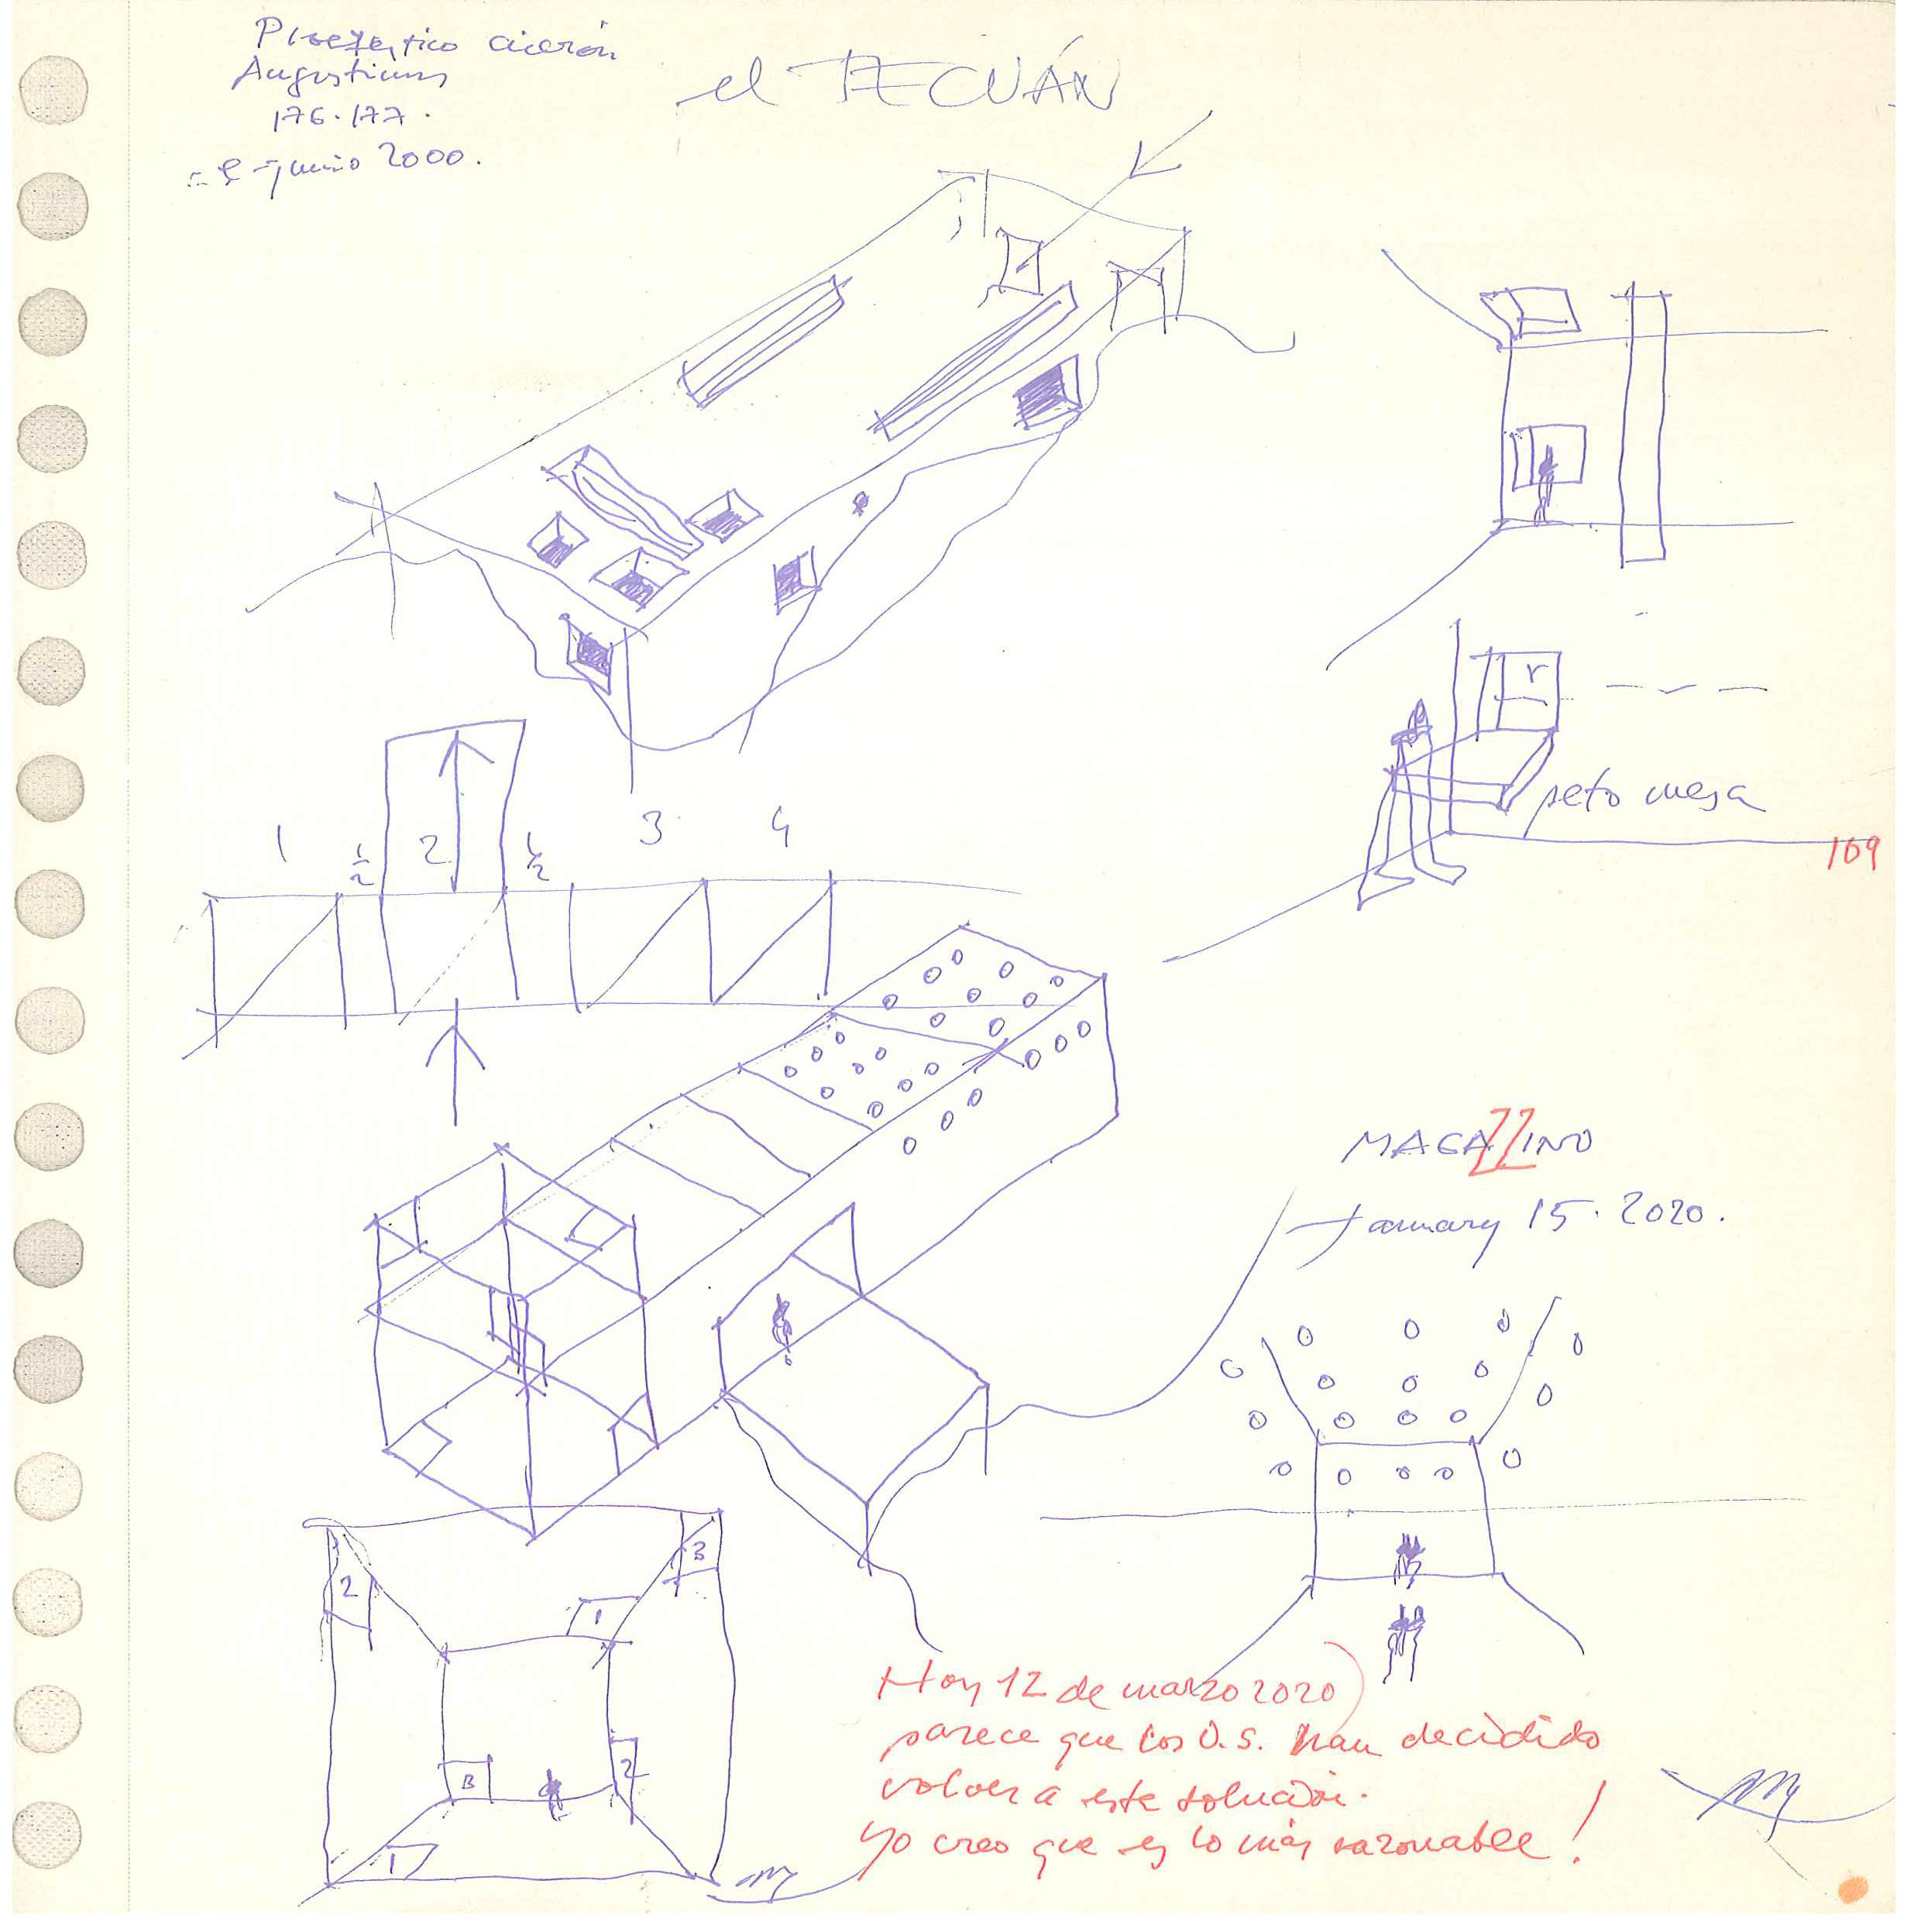 Protréptico cicerón
Augustinus
176.177.
junio 2000.
el TECUÁN
r
peto mesa
109
1
1/2
2
1/2
3
4
MAGAZZINO
January 15. 2020.
2
3
1
B
2
1
Hoy 12 de marzo 2020
parece que los O.S. han decidido
volver a este solución.
Yo creo que es lo más razonable!